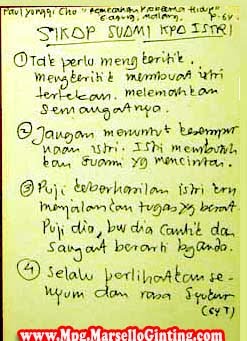 Paul Yonggi Cho "Pemecahan Problema Hidup"
Gagung, Malang. P-64
SIKAP SUAMI KPD ISTRI
① Tak perlu mengkritik.
mengkritik membuat istri
tertekan. melemahkan
semangatnya.
② Jangan menuntut kesempur
naan istri. Istri membutuh
kan suami yg mencintai.
③ Puji keberhasilan istri
menjalankan tugas yg berat.
Puji dia, bw dia cantik dan
sangat berarti bg anda.
④ Selalu perlihatkan se-
nyum dan rasa syukur
www.Mpg.MarselloGinting.com